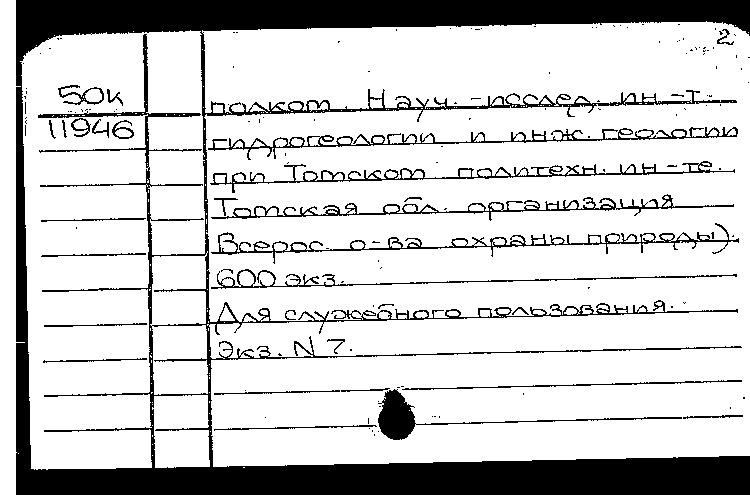 2
50к
11946
полком. Науч.-исслед. ин-т
гидрогеологии и инж. геологии
при Томском политехн. ин-те.
Томская обл. организация
Всерос. о-ва охраны природы).
600 экз.
Для служебного пользования.
Экз. N 7.